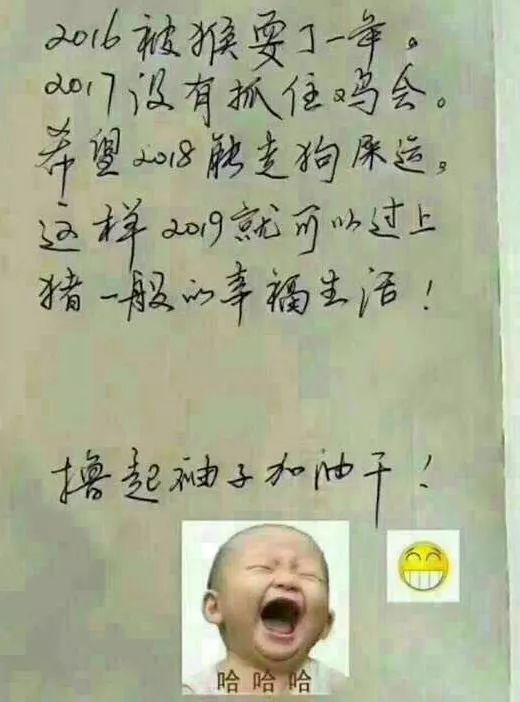 2016被猴耍了一年。
2017没有抓住鸡会。
希望2018能走狗屎运。
这样2019就可以过上
猪一般的幸福生活！
撸起袖子加油干！
哈哈哈